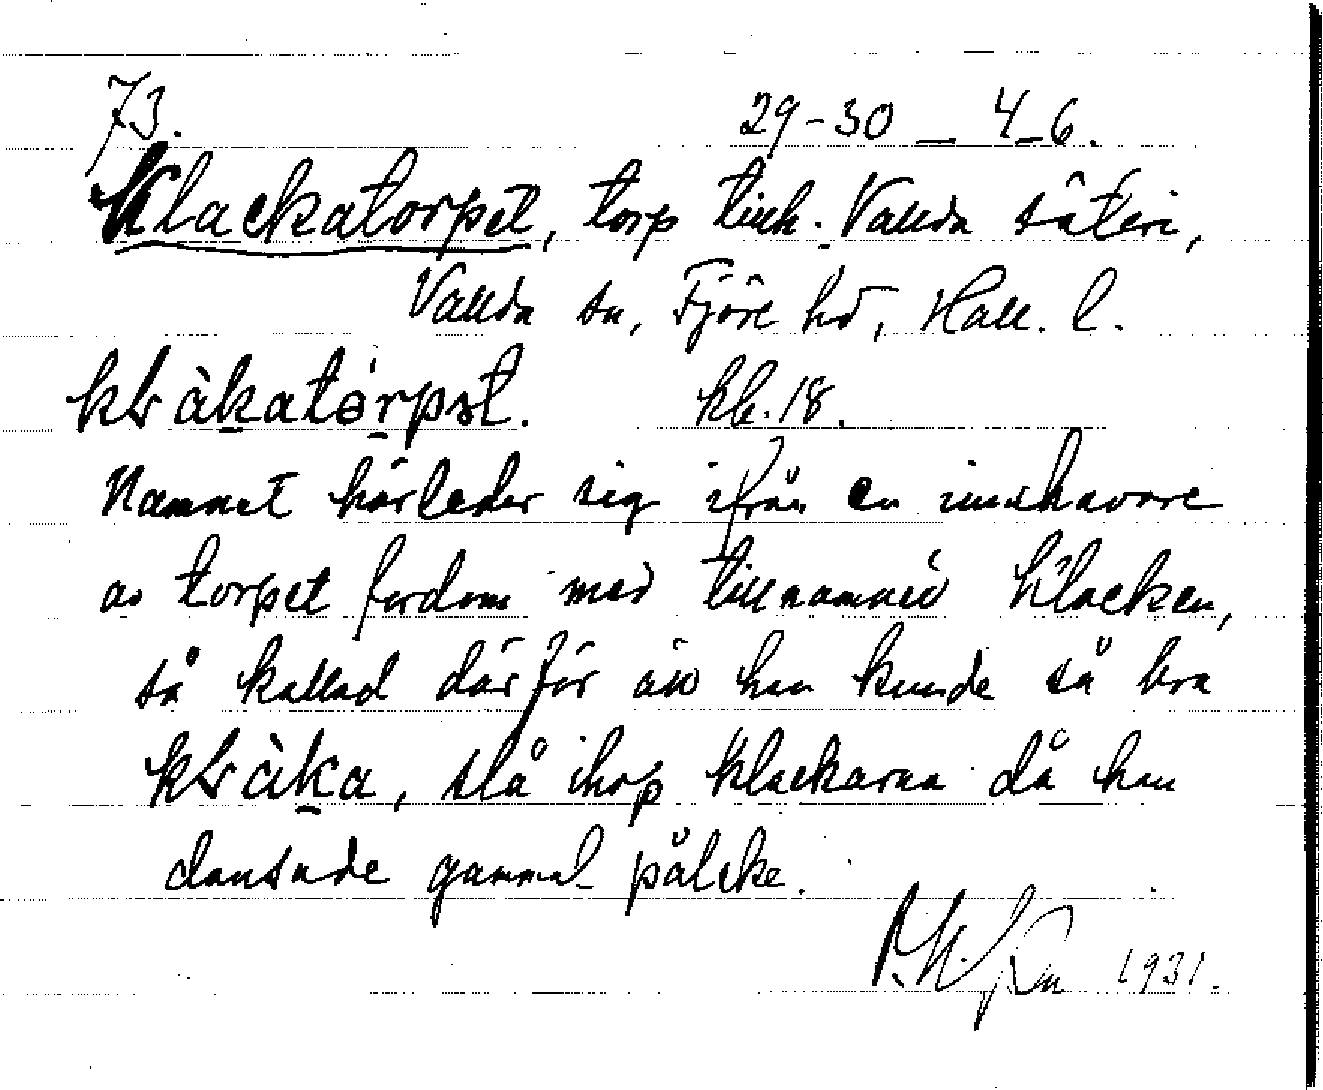 73. 29-30 _ 4-6.
Klackatorpet, torp tillh. Vallda säteri,
Vallda sn, Fjäre hd, Hall. l.
kb. 18.
Namnet härleder sig ifrån en innehavare
av torpet fordom med tillnamnet Klacken,
så kallad därför att han kunde så bra
slå ihop klackarna då han
dansade gammal pålske.
1931.